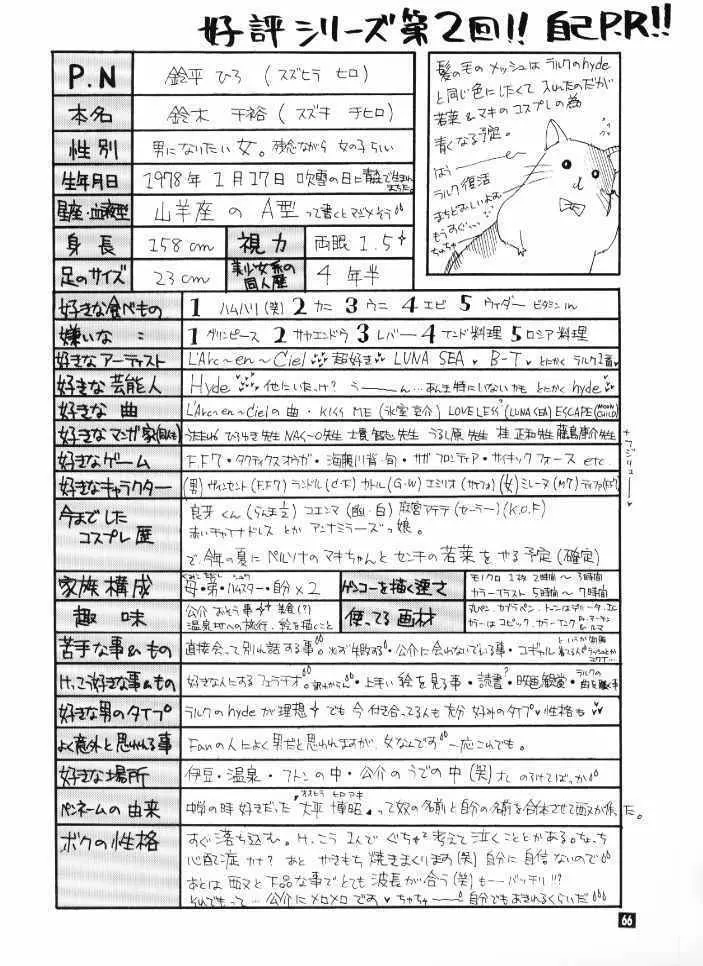 好評シリーズ第2回!! 自己P.R!!
P.N 鈴平 ひろ (スズヒラ ヒロ)
本名 鈴木 千裕 (スズキ チヒロ)
性別 男になりたい女。残念ながら女の子らしい
生年月日 1978年 1月17日 吹雪の日に青森で生まれました。
星座・血液型 山羊座 の A型 って書くとマジメそう
身長 158cm 視力 両眼 1.5
足のサイズ 23cm 美少女系の同人歴 4年半
髪の毛のメッシュはラルクのhyde
と同じ色にしたくて入れたのだが
若菜&マキのコスプレの為
青くなる予定。
はぅー
ラルク復活
まちどおしいよぉ
もうすぐ…
ちゅちゅ
好きな食べもの 1 ハムハリ(笑) 2 カニ 3 ウニ 4 エビ 5 ウィダー ビタミンin
嫌いな 〃 1 グリンピース 2 サヤエンドウ 3 レバー 4 インド料理 5 ロシア料理
好きなアーティスト L'Arc~en~Ciel 超好き LUNA SEA B-T とにかくラルク1番
好きな芸能人 Hyde 他にいたっけ? うーーん…あんま特にいないかも とにかくhyde
好きな 曲 L'Arc~en~Cielの曲・KISS ME (氷室京介) LOVELESS (LUNA SEA) ESCAPE (MOON CHILD)
好きなマンガ家(同人含) 先生 NAS~O先生 士貴智志先生 うるし原先生 桂 正和先生 藤島康介先生
好きなゲーム F.F7・タクティクスオウガ・海腹川背・旬・サガ フロンティア・サイキックフォース etc
好きなキャラクター (男) ヴィンセント(F.F7) カトル(G・W) エミリオ(サイフォ) (女) ミレーヌ(M7) ティファ(F.F7)
今までした コスプレ歴 良牙くん (らんま½) コエンマ (幽・白) (セーラー) (K.O.F)
赤いチャイナドレス とか アンナミラーズっ娘。
で今年の夏に ペルソナのマキちゃんと センチの若菜をやる予定(確定)
家族構成 母・弟・ハムスター・自分×2 ゲンコーを描く速さ モノクロ 1枚 2時間~3時間
カラーイラスト 5時間~7時間
趣味 公介 おそう事 (?)
温泉地への旅行、絵を描くこと 使ってる画材 丸ペン、カブラペン、トーンはデリータ、I.C
カラーはコピック、カラーインク
苦手な事&もの 直接会って別れ話する事。・公介に会えないでいる事・コギャル
けっこう好きな事&もの 好きな人にするフェラチオ。・上手い絵を見る事・読書・映画鑑賞・ラルクの曲を聴く事
好きな男のタイプ ラルクのhydeが理想 でも 今 付き合ってる人も充分 好みのタイプ 性格も
よく意外と思われる事 Fanの人によく男だと思われますが、女なんです 一応これでも。
好きな場所 伊豆・温泉・フトンの中・公介のうでの中(笑) のろけてばっか
ペンネームの由来 中学の時好きだった 大平 博昭 って奴の名前と自分の名前を合体させて西又が作った。
ボクの性格 すぐ落ち込む。けっこう1人でぐちゃぐちゃ考えて泣くことがある。ちょっち
心配症かな? あと やきもち焼きまくります(笑) 自分に自信ないので
あとは西又と下品な事でとても波長が合う(笑) もーーバッチリ!!?
それでもって…公介にメロメロです ちゅちゅーー 自分でもあきれるくらいだ
66